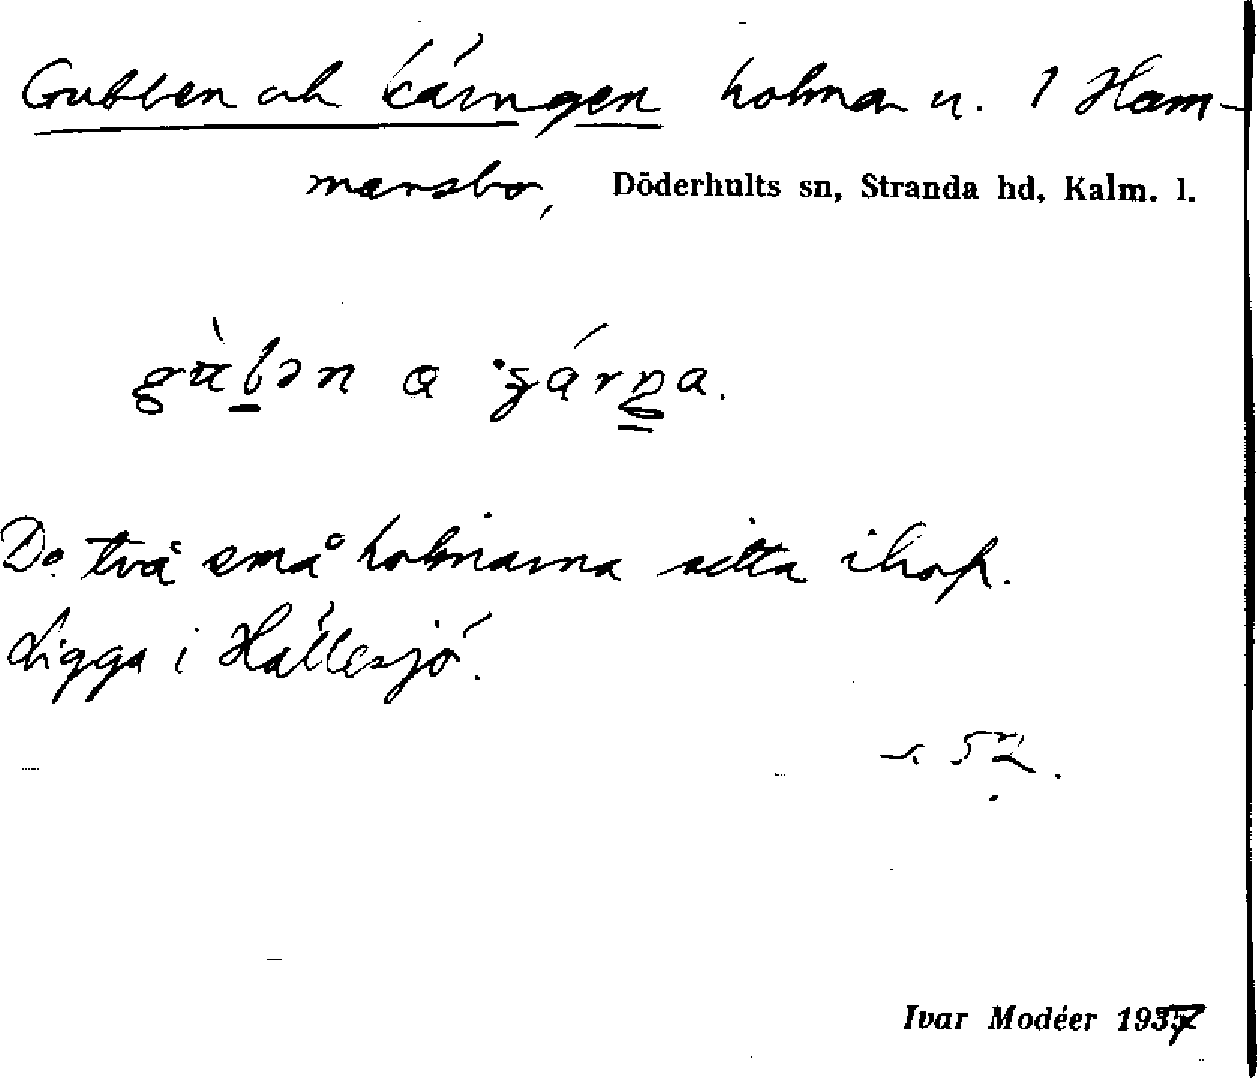 Gubben och kärngen holmar u. 1 Ham-
marsbo, Döderhults sn, Stranda hd, Kalm. l.
De två små holmarna sitta ihop.
Ligga i Hällesjö.
s 52.
Ivar Modéer 1937